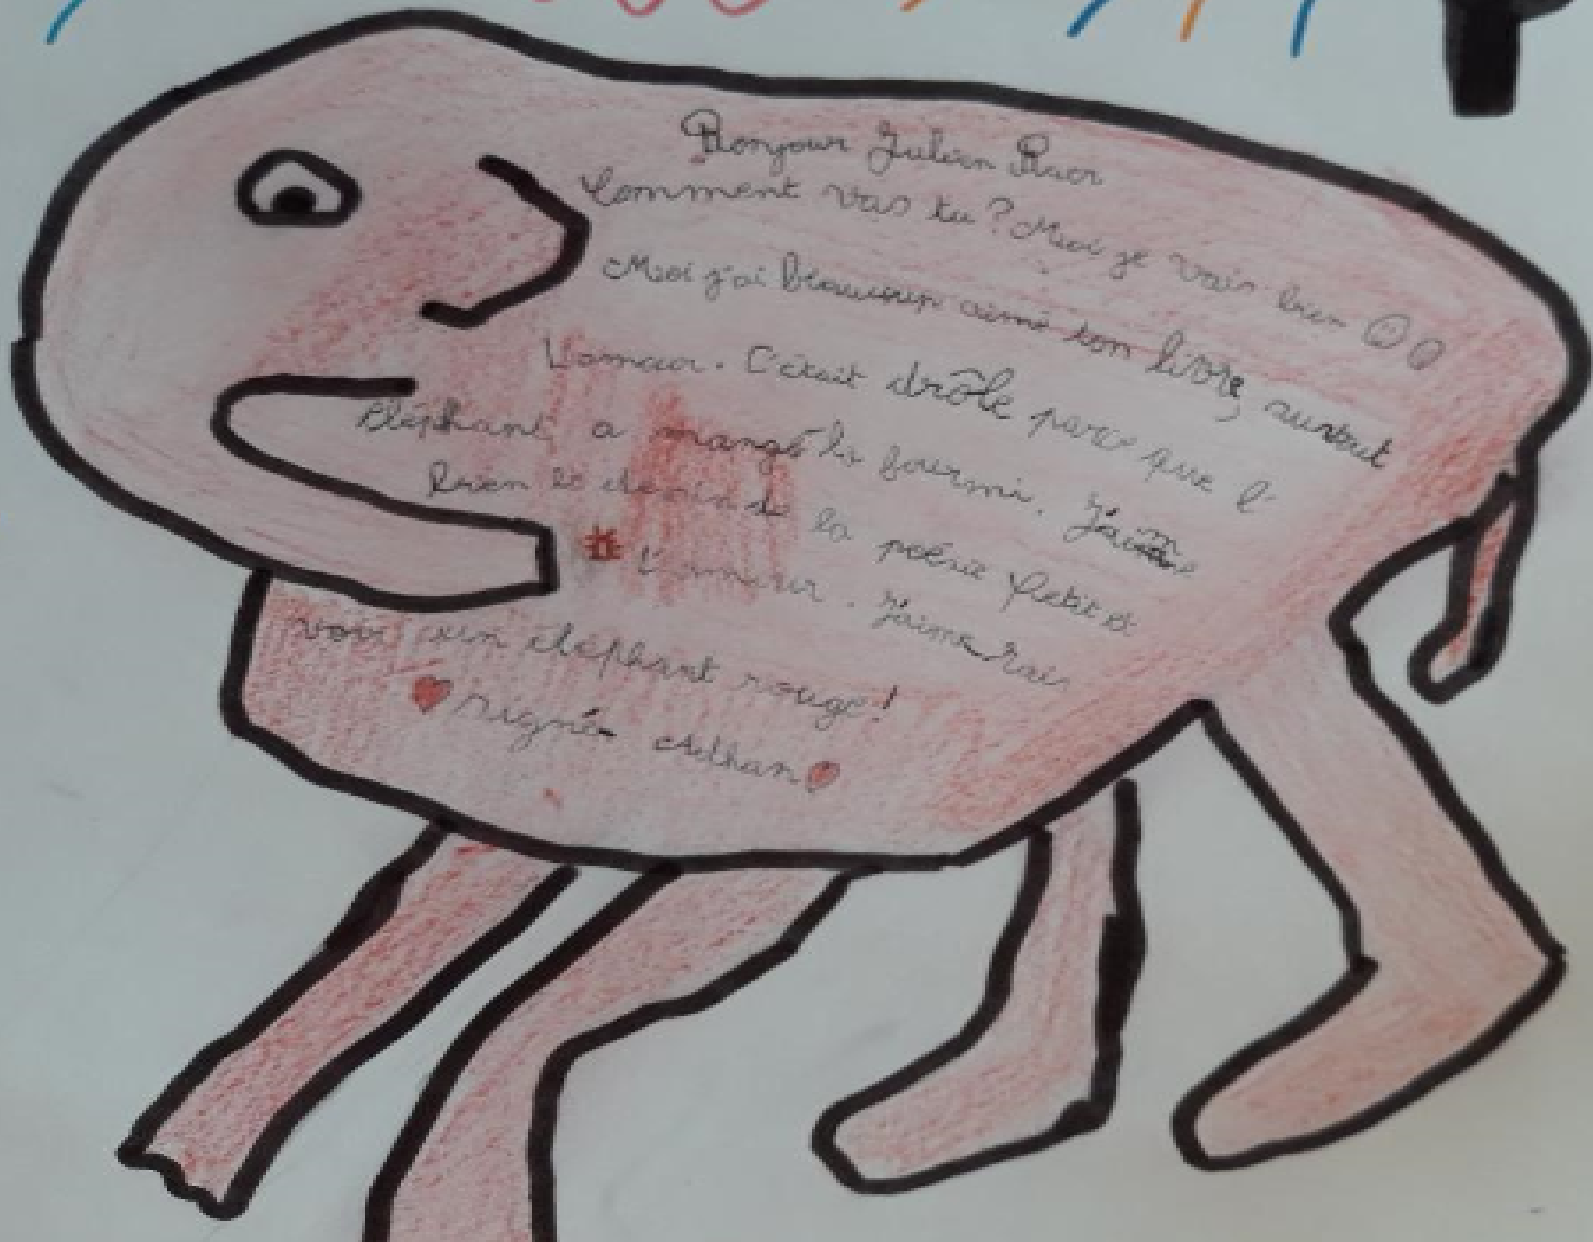 Bonjour Julien Baer
Comment vas tu ? Moi je vais bien
Moi j'ai beaucoup aimé ton livre, surtout
L'amour. C'était drôle parce que l'
éléphant a mangé la fourmi. J'aime
bien le dessin de la poésie Petit et
l'amour. J'aimerais
voir un éléphant rouge!
signé Adhan